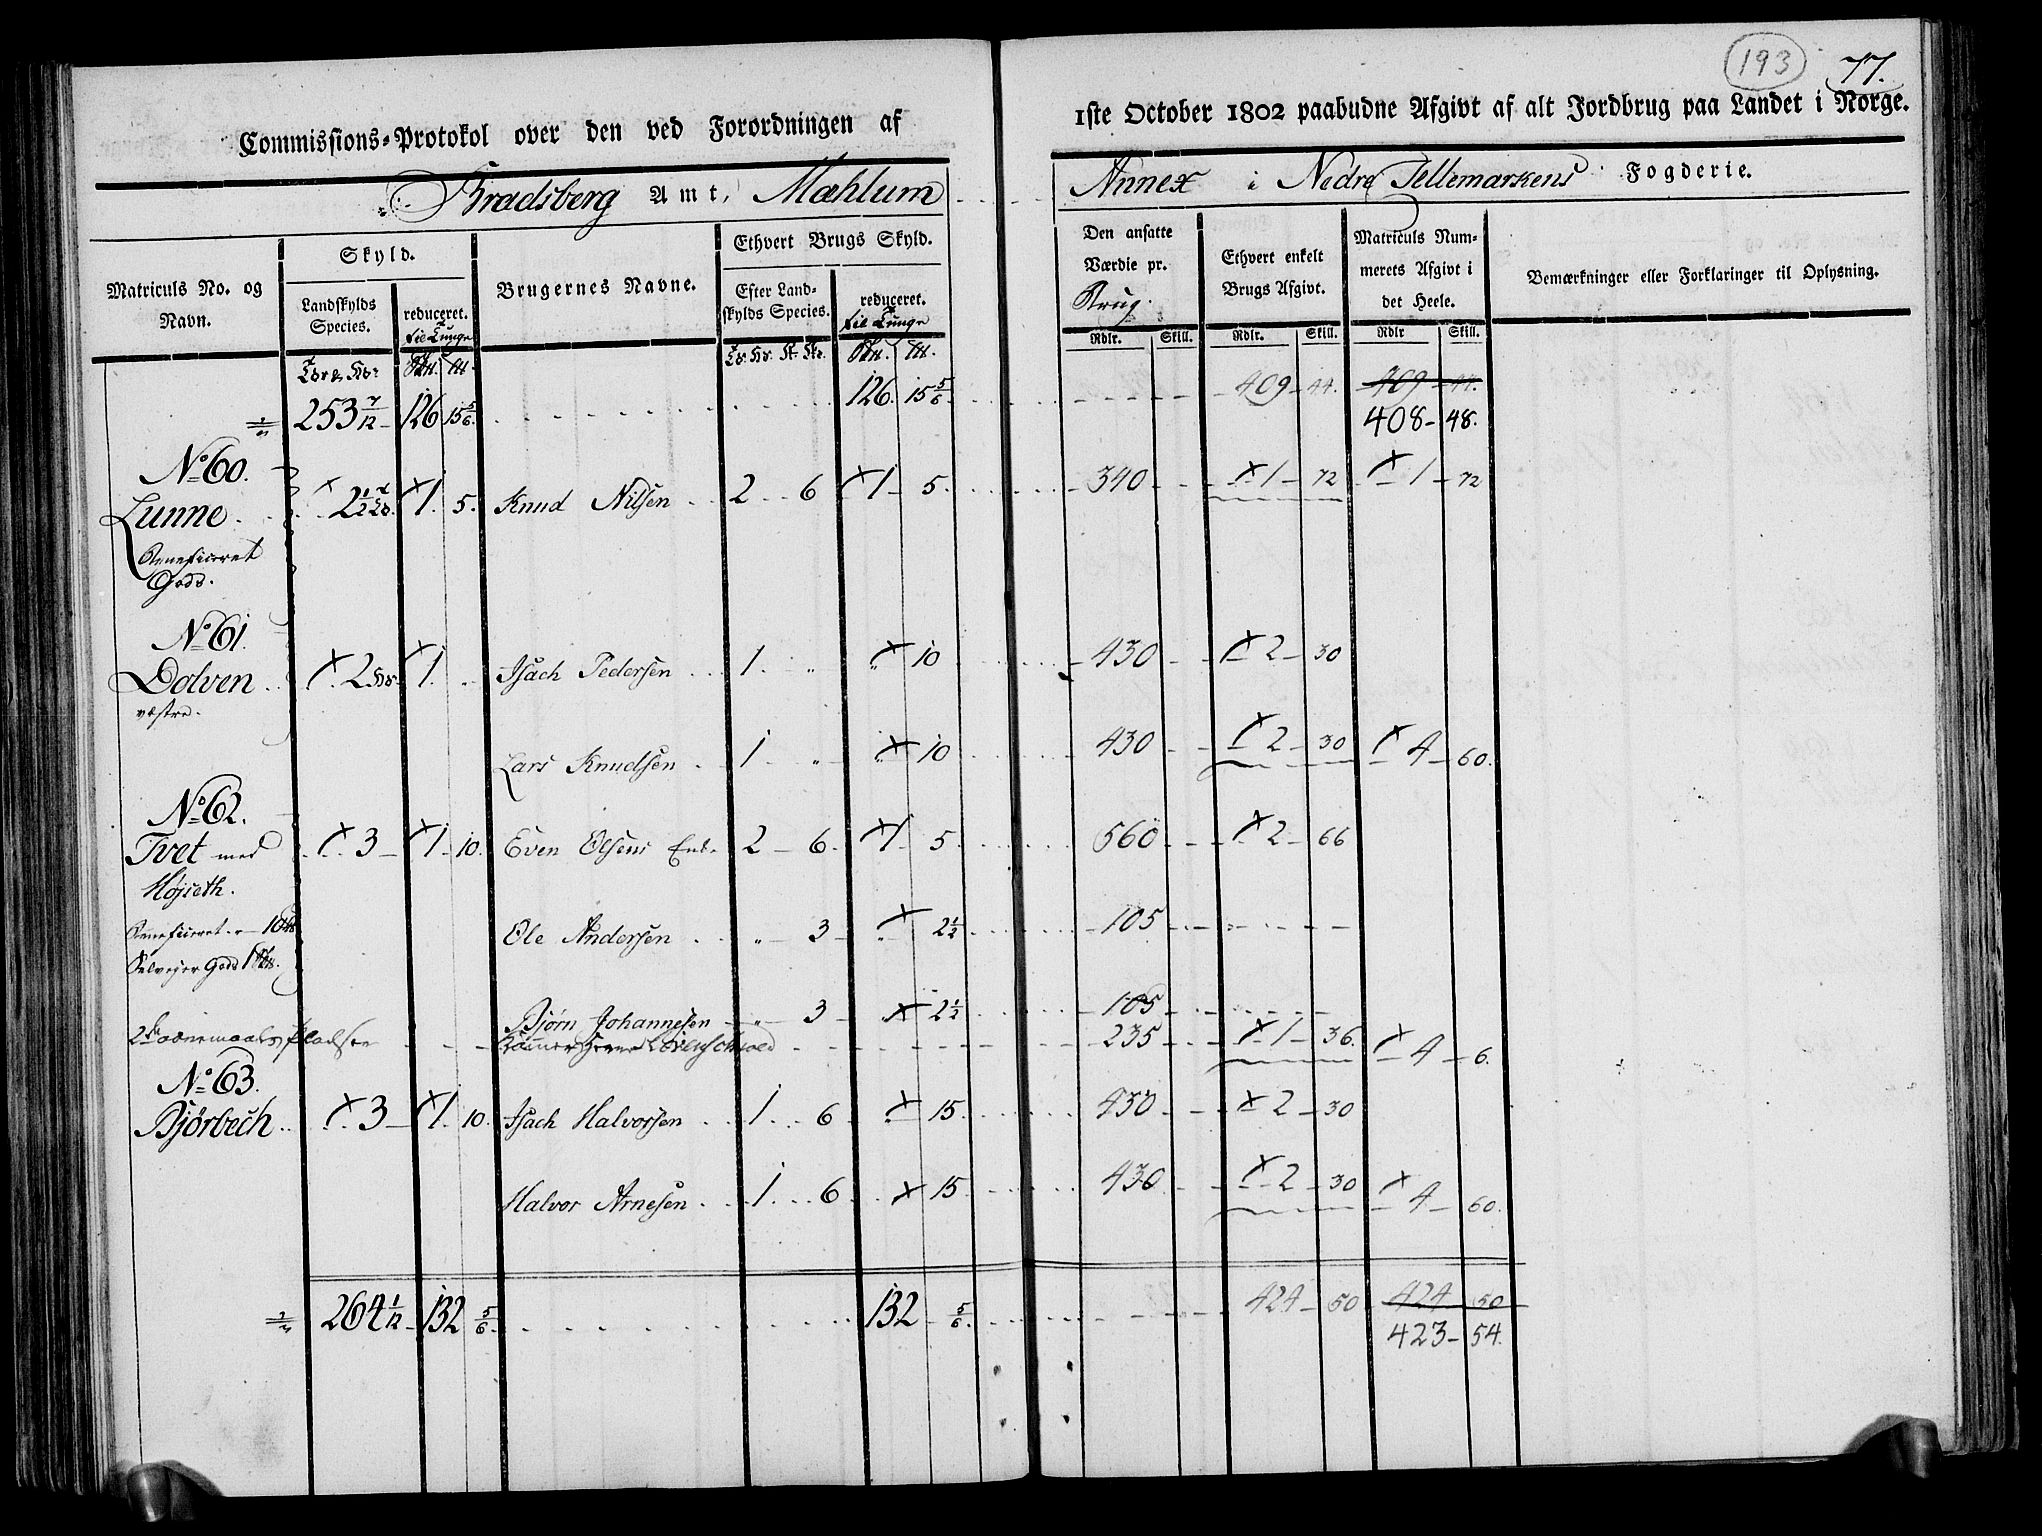 193
77.
Commissions-Protokol over den ved Forordningen af 1ste October 1802 paabudne Afgivt af alt Jordbrug paa Landet i Norge.
Bradsberg Amt, Mæhlum Annex i Nedre Tellemarkens Fogderie.
Matriculs No. og Navn.
Skyld.
Landskylds Species.
reduceret. til Tunge
Brugernes Navne.
Ethvert Brugs Skyld.
Efter Landskylds Species.
reduceret. til Tunge
Den ansatte Værdie pr. Brug.
Rdlr. Skill.
Ethvert enkelt Brugs Afgivt.
Rdlr. Skill.
Matriculs Nummerets Afgivt i det Heele.
Rdlr Skill.
Bemærkninger eller Forklaringer til Oplysning.
253 7/12 126 15 5/6 126 15 5/6 409 44 409 44.
408 48.
No 60.
Lunne 2 1/2 1 5. Knud Nilsen 2 6 1 5. 340 1 72 1 72
Beneficeret
Gods.
No 61.
Dolven 2 1 " Isach Pedersen 1 " " 10 430 2 30
vestre.
Lars Knudsen 1 " " 10 430 2 30 4 60.
No 62.
Tvet med 3 1 10. Even Olsens Enke 2 6 1 5 560 2 66
Højseth.
Beneficeret Ole Andersen " 3 " 2 1/2 105
Selvejer Gods
Bjørn Johannesen " 3 2 1/2 105
235 1 36 4 6.
No 63.
Bjørbech 3 1 10. Isach Halvorsen 1 6 15 430 2 30
Halvor Arnesen 1 6 15 430 2 30 4 60.
264 1/12 132 5/6 132 5/6 424 50 424 50
423 54.